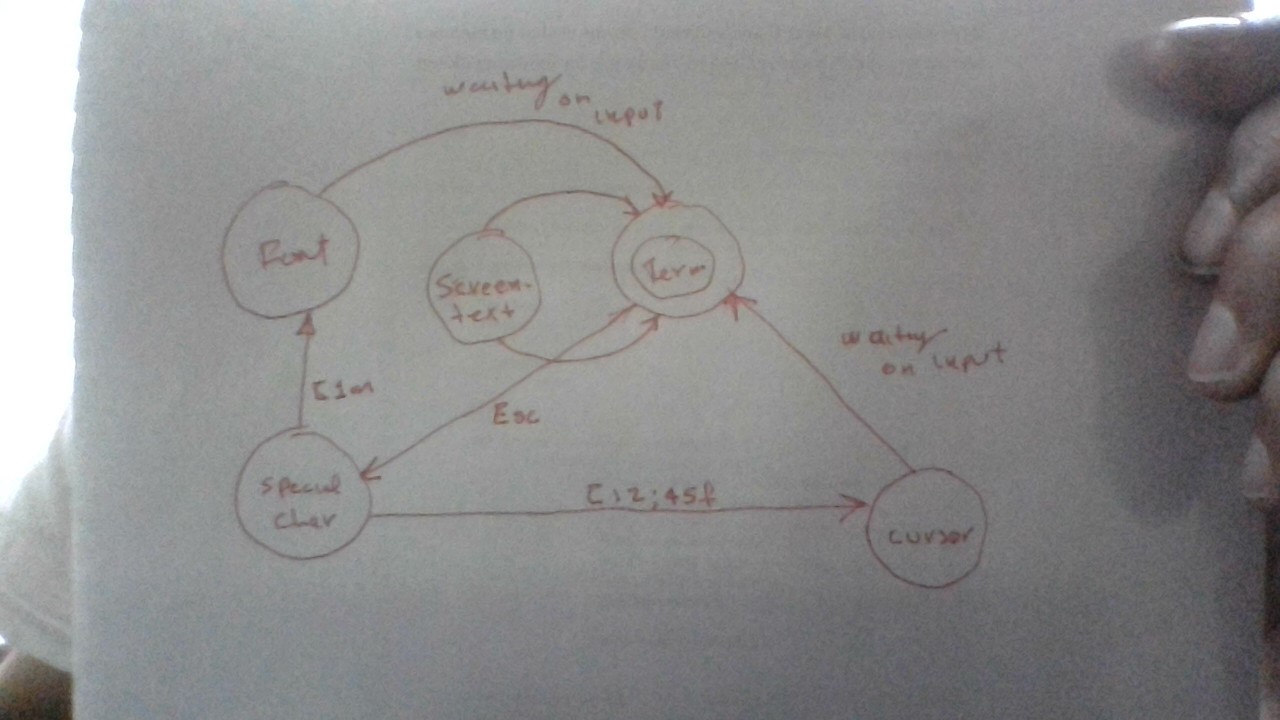 waiting
on
input
Font
Screen-
text
Term
waiting
on input
[1m
Esc
special
char
[12;45f
cursor